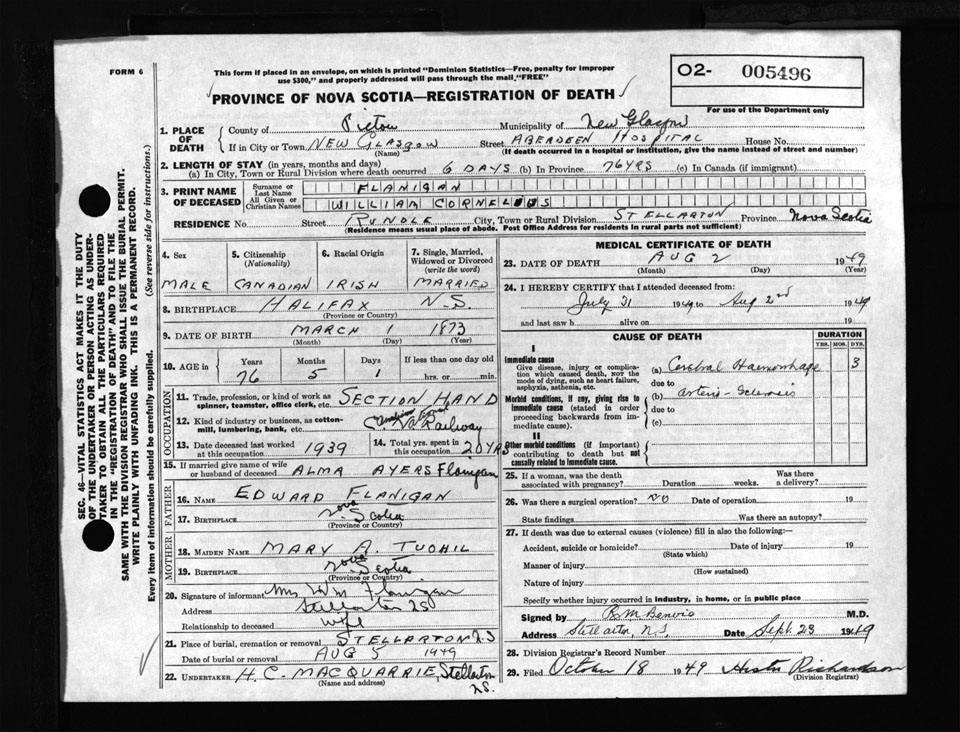 FORM 6
This form if placed in an envelope, on which is printed "Dominion Statistics—Free, penalty for improper
use $300," and properly addressed will pass through the mail "FREE"
O2- 005496
For use of the Department only
PROVINCE OF NOVA SCOTIA—REGISTRATION OF DEATH
1. PLACE OF DEATH
County of Pictou Municipality of New Glasgow
If in City or Town NEW GLASGOW Street ABERDEEN HOSPITAL House No.
(Name) (If death occurred in a hospital or institution, give the name instead of street and number)
2. LENGTH OF STAY (in years, months and days)
(a) In City, Town or Rural Division where death occurred 6 DAYS (b) In Province 76 YRS (c) In Canada (if immigrant)
3. PRINT NAME OF DECEASED
Surname or Last Name FLANIGAN
All Given or Christian Names WILLIAM CORNELIUS
RESIDENCE No. Street RUNDLE City, Town or Rural Division STELLARTON Province Nova Scotia
(Residence means usual place of abode. Post Office Address for residents in rural parts not sufficient)
4. Sex
MALE
5. Citizenship (Nationality)
CANADIAN
6. Racial Origin
IRISH
7. Single, Married, Widowed or Divorced (write the word)
MARRIED
8. BIRTHPLACE HALIFAX N.S.
(Province or Country)
9. DATE OF BIRTH MARCH 1 1873
(Month) (Day) (Year)
10. AGE in
Years Months Days If less than one day old
76 5 1 hrs. or min.
OCCUPATION
11. Trade, profession, or kind of work as SECTION HAND
spinner, teamster, office clerk, etc.
12. Kind of industry or business, as cotton-
mill, lumbering, bank, etc. Railway
13. Date deceased last worked at this occupation 1939
14. Total yrs. spent in this occupation 20 YRS
15. If married give name of wife
or husband of deceased ALMA AYERS Flanigan
FATHER
16. NAME EDWARD FLANIGAN
17. BIRTHPLACE Nova Scotia
(Province or Country)
MOTHER
18. MAIDEN NAME MARY A. TUOHIL
19. BIRTHPLACE Nova Scotia
(Province or Country)
20. Signature of informant Mrs Wm Flanigan
Address Stellarton NS
Relationship to deceased wife
21. Place of burial, cremation or removal STELLARTON N.S
Date of burial or removal AUG 5 1949
22. UNDERTAKER H.C. MACQUARRIE, Stellarton NS.
(Name and address)
MEDICAL CERTIFICATE OF DEATH
23. DATE OF DEATH AUG 2 1949
(Month) (Day) (Year)
24. I HEREBY CERTIFY that I attended deceased from:
July 31 1949 to Aug 2nd 1949
and last saw h alive on 19
CAUSE OF DEATH
DURATION
YRS. MOS. DYS.
I
Immediate cause
Give disease, injury or complica-
tion which caused death, NOT the
mode of dying, such as heart failure,
asphyxia, asthenia, etc.
(a) Cerebral Haemorrhage 3
due to
Morbid conditions, if any, giving rise to
immediate cause (stated in order
proceeding backwards from im-
mediate cause).
(b) arterio-Sclerosis
due to
(c)
II
Other morbid conditions (if important)
contributing to death but not
causally related to immediate cause.
25. If a woman, was the death
associated with pregnancy? Duration weeks. Was there a delivery?
26. Was there a surgical operation? no Date of operation 19
State findings Was there an autopsy?
27. If death was due to external causes (violence) fill in also the following:—
Accident, suicide or homicide? Date of injury 19
(State which)
Manner of injury
(How sustained)
Nature of injury
Specify whether injury occurred in industry, in home, or in public place
Signed by M.D.
Address Stellarton, N.S. Date Sept. 23 1949
28. Division Registrar's Record Number
29. Filed October 18 1949 Richardson
(Division Registrar)
SEC. 46—VITAL STATISTICS ACT MAKES IT THE DUTY
OF THE UNDERTAKER OR PERSON ACTING AS UNDER-
TAKER TO OBTAIN ALL THE PARTICULARS REQUIRED
IN THE "REGISTRATION OF DEATH" AND TO FILE THE
SAME WITH THE DIVISION REGISTRAR WHO SHALL ISSUE THE BURIAL PERMIT.
WRITE PLAINLY WITH UNFADING INK. THIS IS A PERMANENT RECORD.
Every item of information should be carefully supplied. (See reverse side for instructions.)